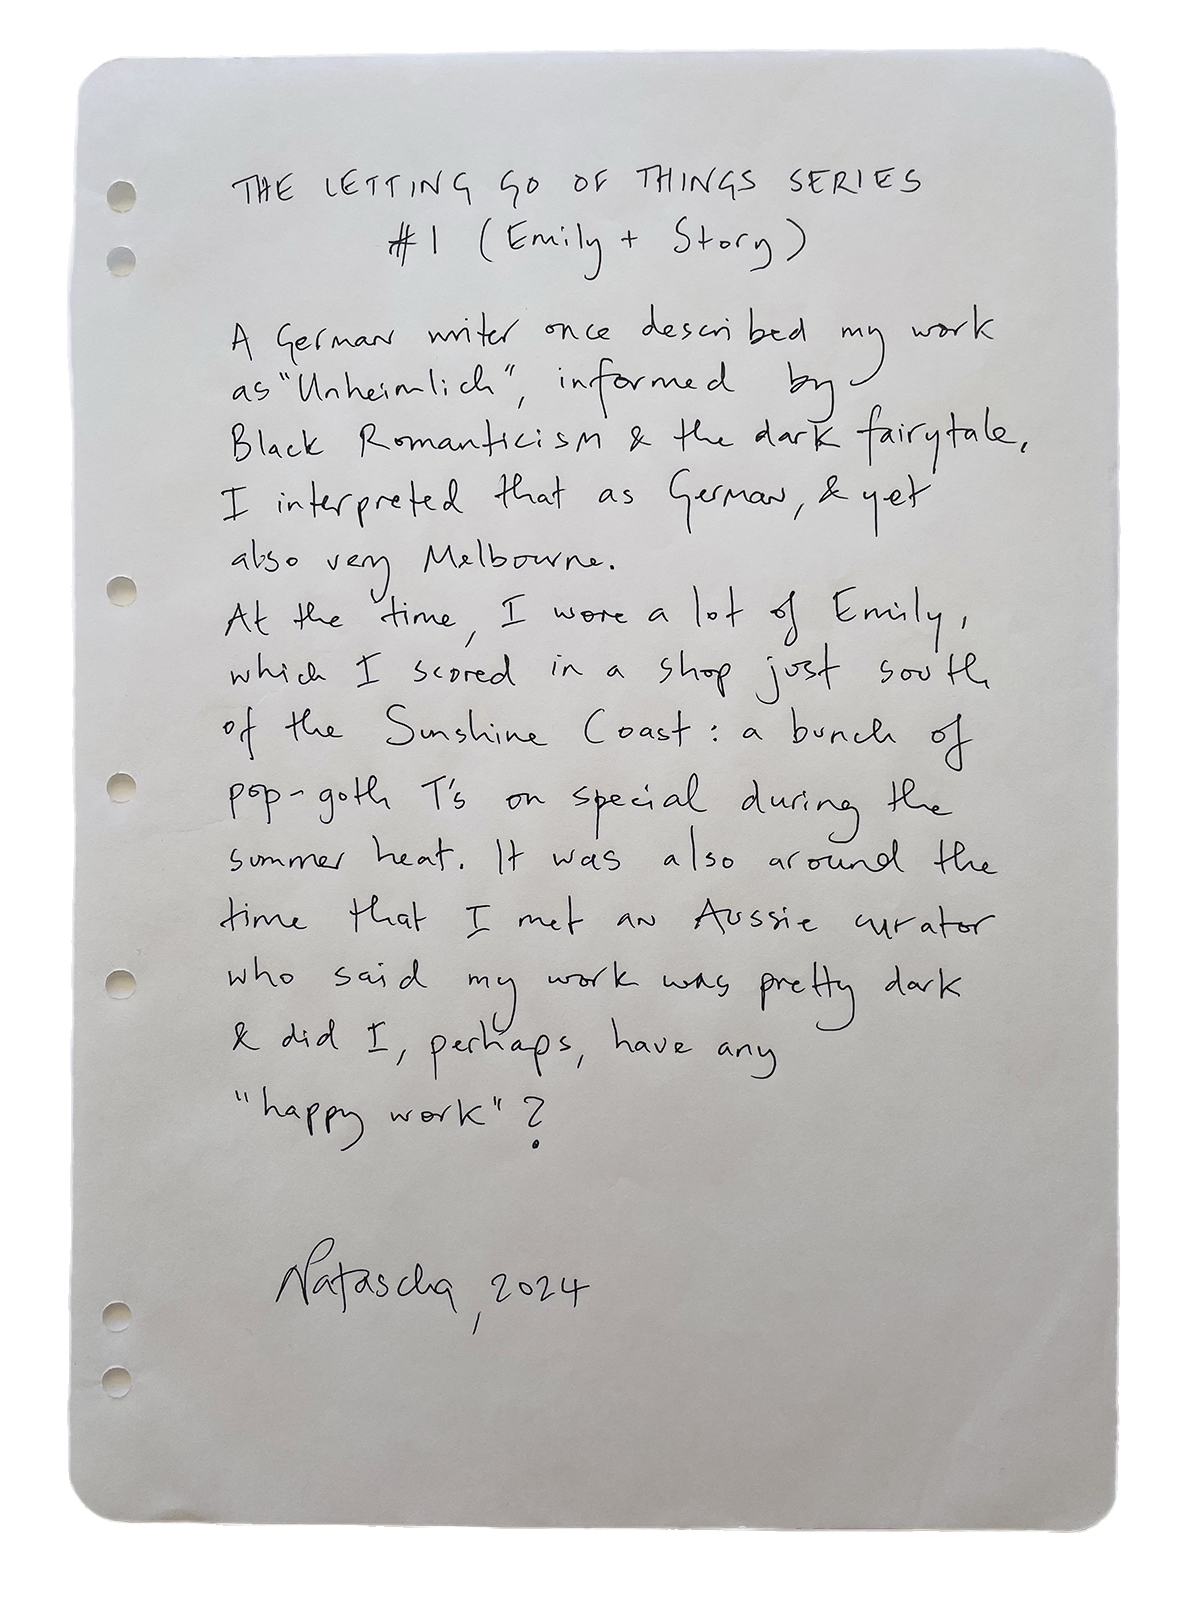 THE LETTING GO OF THINGS SERIES
#1 (Emily + Story)
A German writer once described my work
as "Unheimlich", informed by
Black Romanticism & the dark fairytale,
I interpreted that as German, & yet
also very Melbourne.
At the time, I wore a lot of Emily,
which I scored in a shop just south
of the Sunshine Coast: a bunch of
pop-goth T's on special during the
summer heat. It was also around the
time that I met an Aussie curator
who said my work was pretty dark
& did I, perhaps, have any
"happy work"?
Natascha, 2024